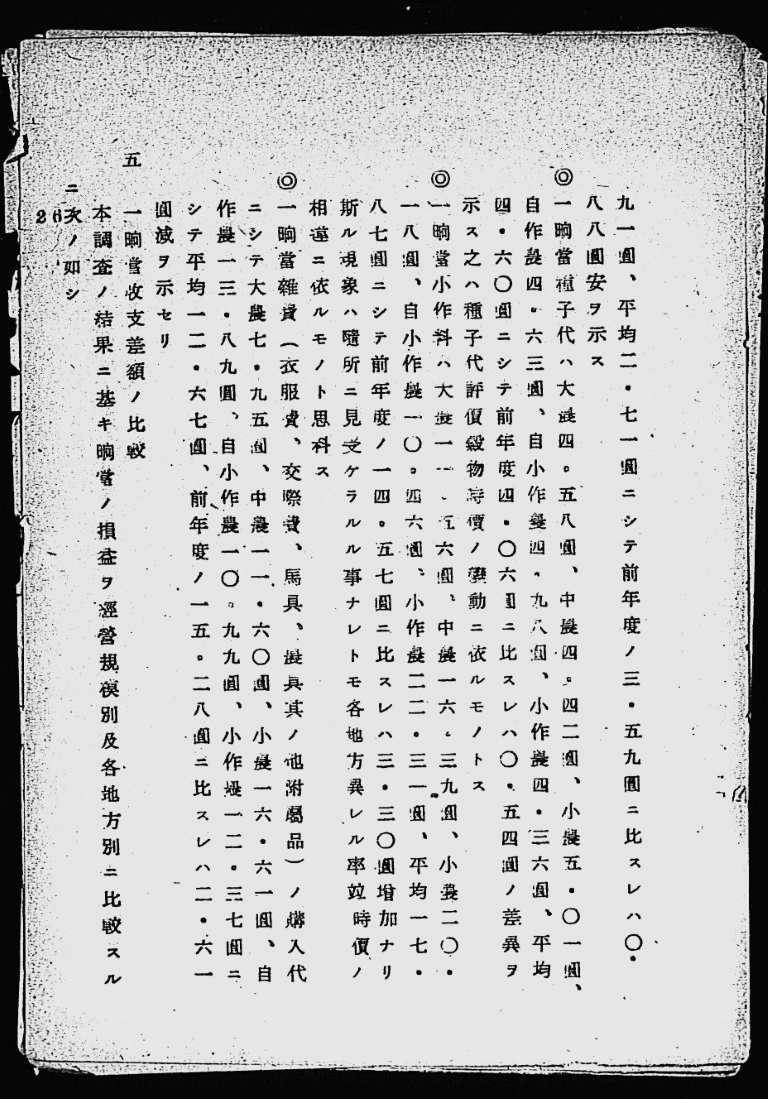 九一圓、平均二・七一圓ニシテ前年度ノ三・五九圓ニ比スレハ〇・
八八圓安ヲ示ス
◎一晌當種子代ハ大農四。五八圓、中農四。四二圓、小農五・〇一圓、
自作農四。六三圓、自小作農四・九八圓、小作農四・三六圓、平均
四・六〇圓ニシテ前年度四・〇六圓ニ比スレハ〇・五四圓ノ差異ヲ
示ス之ハ種子代評價穀物時價ノ變動ニ依ルモノトス
◎一晌當小作料ハ大農一一・五六圓、中農一六。三九圓、小農二〇・
一八圓、自小作農一〇。四六圓、小作農二二・三一圓、平均一七・
八七圓ニシテ前年度ノ一四。五七圓ニ比スレハ三・三〇圓增加ナリ
斯ル現象ハ隨所ニ見受ケラルル事ナレトモ各地方異レル率竝時價ノ
相違ニ依ルモノト思料ス
◎一晌當雜費（衣服費、交際費、馬具、農具其ノ他附屬品）ノ購入代
ニシテ大農七・九五圓、中農一一・六〇圓、小農一六・六一圓、自
作農一三・八九圓、自小作農一〇。九九圓、小作農一二・三七圓ニ
シテ平均一二・六七圓、前年度ノ一五。二八圓ニ比スレハ二・六一
圓減ヲ示セリ
五 一晌當收支差額ノ比較
本調査ノ結果ニ基キ晌當ノ損益ヲ經營規模別及各地方別ニ比較スル
ニ次ノ如シ
26